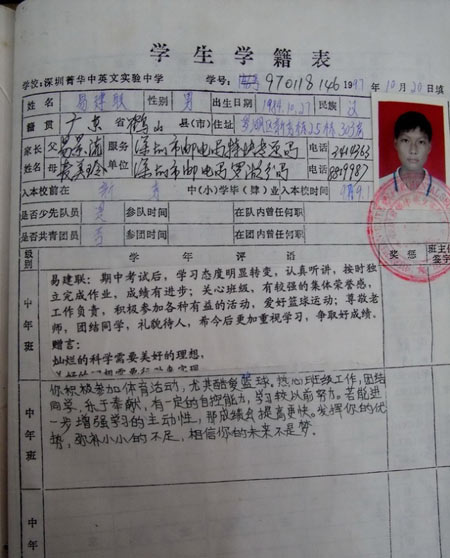 学生学籍表
学校:深圳菁华中英文实验中学 学号: 970118146 1997年10月20日填
姓名 易建联 性别 男 出生日期 1984.10.27 民族 汉
籍贯 广东省鹤山县(市)住址
家长姓名 父 易景流 服务单位 深圳市邮电局特快专递局 电话
母 麦玉玲 深圳市邮电局 电话
入本校前在 新秀 中(小)学毕(肄)业入本校时间
是否少先队员 是 参队时间 在队内曾任何职
是否共青团员 否 参团时间 在团内曾任何职
级别 学年评语 奖惩 班主任签字
中年班
易建联:期中考试后,学习态度明显转变,认真听讲,按时独
立完成作业,成绩有进步;关心班级,有较强的集体荣誉感,
工作负责,积极参加各种有益的活动,爱好篮球运动;尊敬老
师,团结同学,礼貌待人,希今后更加重视学习,争取好成绩。
赠言:
灿烂的科学需要美好的理想,
中年班
你积极参加体育活动,尤其酷爱篮球。热心班级工作,团结
同学,乐于奉献,有一定的自控能力,学习较以前努力。若能进
一步增强学习的主动性,那成绩会提高更快。发挥你的优
势,弥补小小的不足,相信你的未来不是梦。
中年